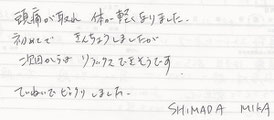 頭痛が取れ 体が軽くなりました。
初めてで きんちょうしましたが
次回からは リラックスできそうです
ていねいで しました。
SHIMADA MIKA